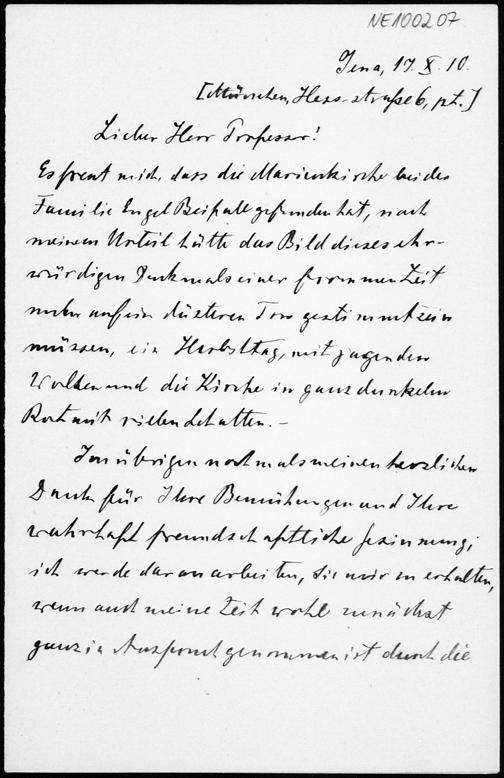 NE100207
Jena, 17. X. 10.
[München, Hess-straße 6, pt.]
Lieber Herr Professor!
Es freut mich, dass die Marienkirche bei des
Familie Engel Beifall gefunden hat, nach
meinem Urteil hätte das Bild dieses ehr-
würdigen Denkmals einer frommen Zeit
mehr auf ein düsteren Ton gestimmt sein
müssen, ein Herbsttag, mit jagenden
Wolken und die Kirche in ganz dunkelm
Rot mit vielen Schatten. –
Im übrigen nochmals meinen herzlichen
Dank für Ihre Bemühungen und Ihre
wahrhaft freundschaftliche Gesinnung;
ich werde daran arbeiten, sie mir zu erhalten,
wenn auch meine Zeit wohl zunächst
ganz in Anspruch genommen ist durch die